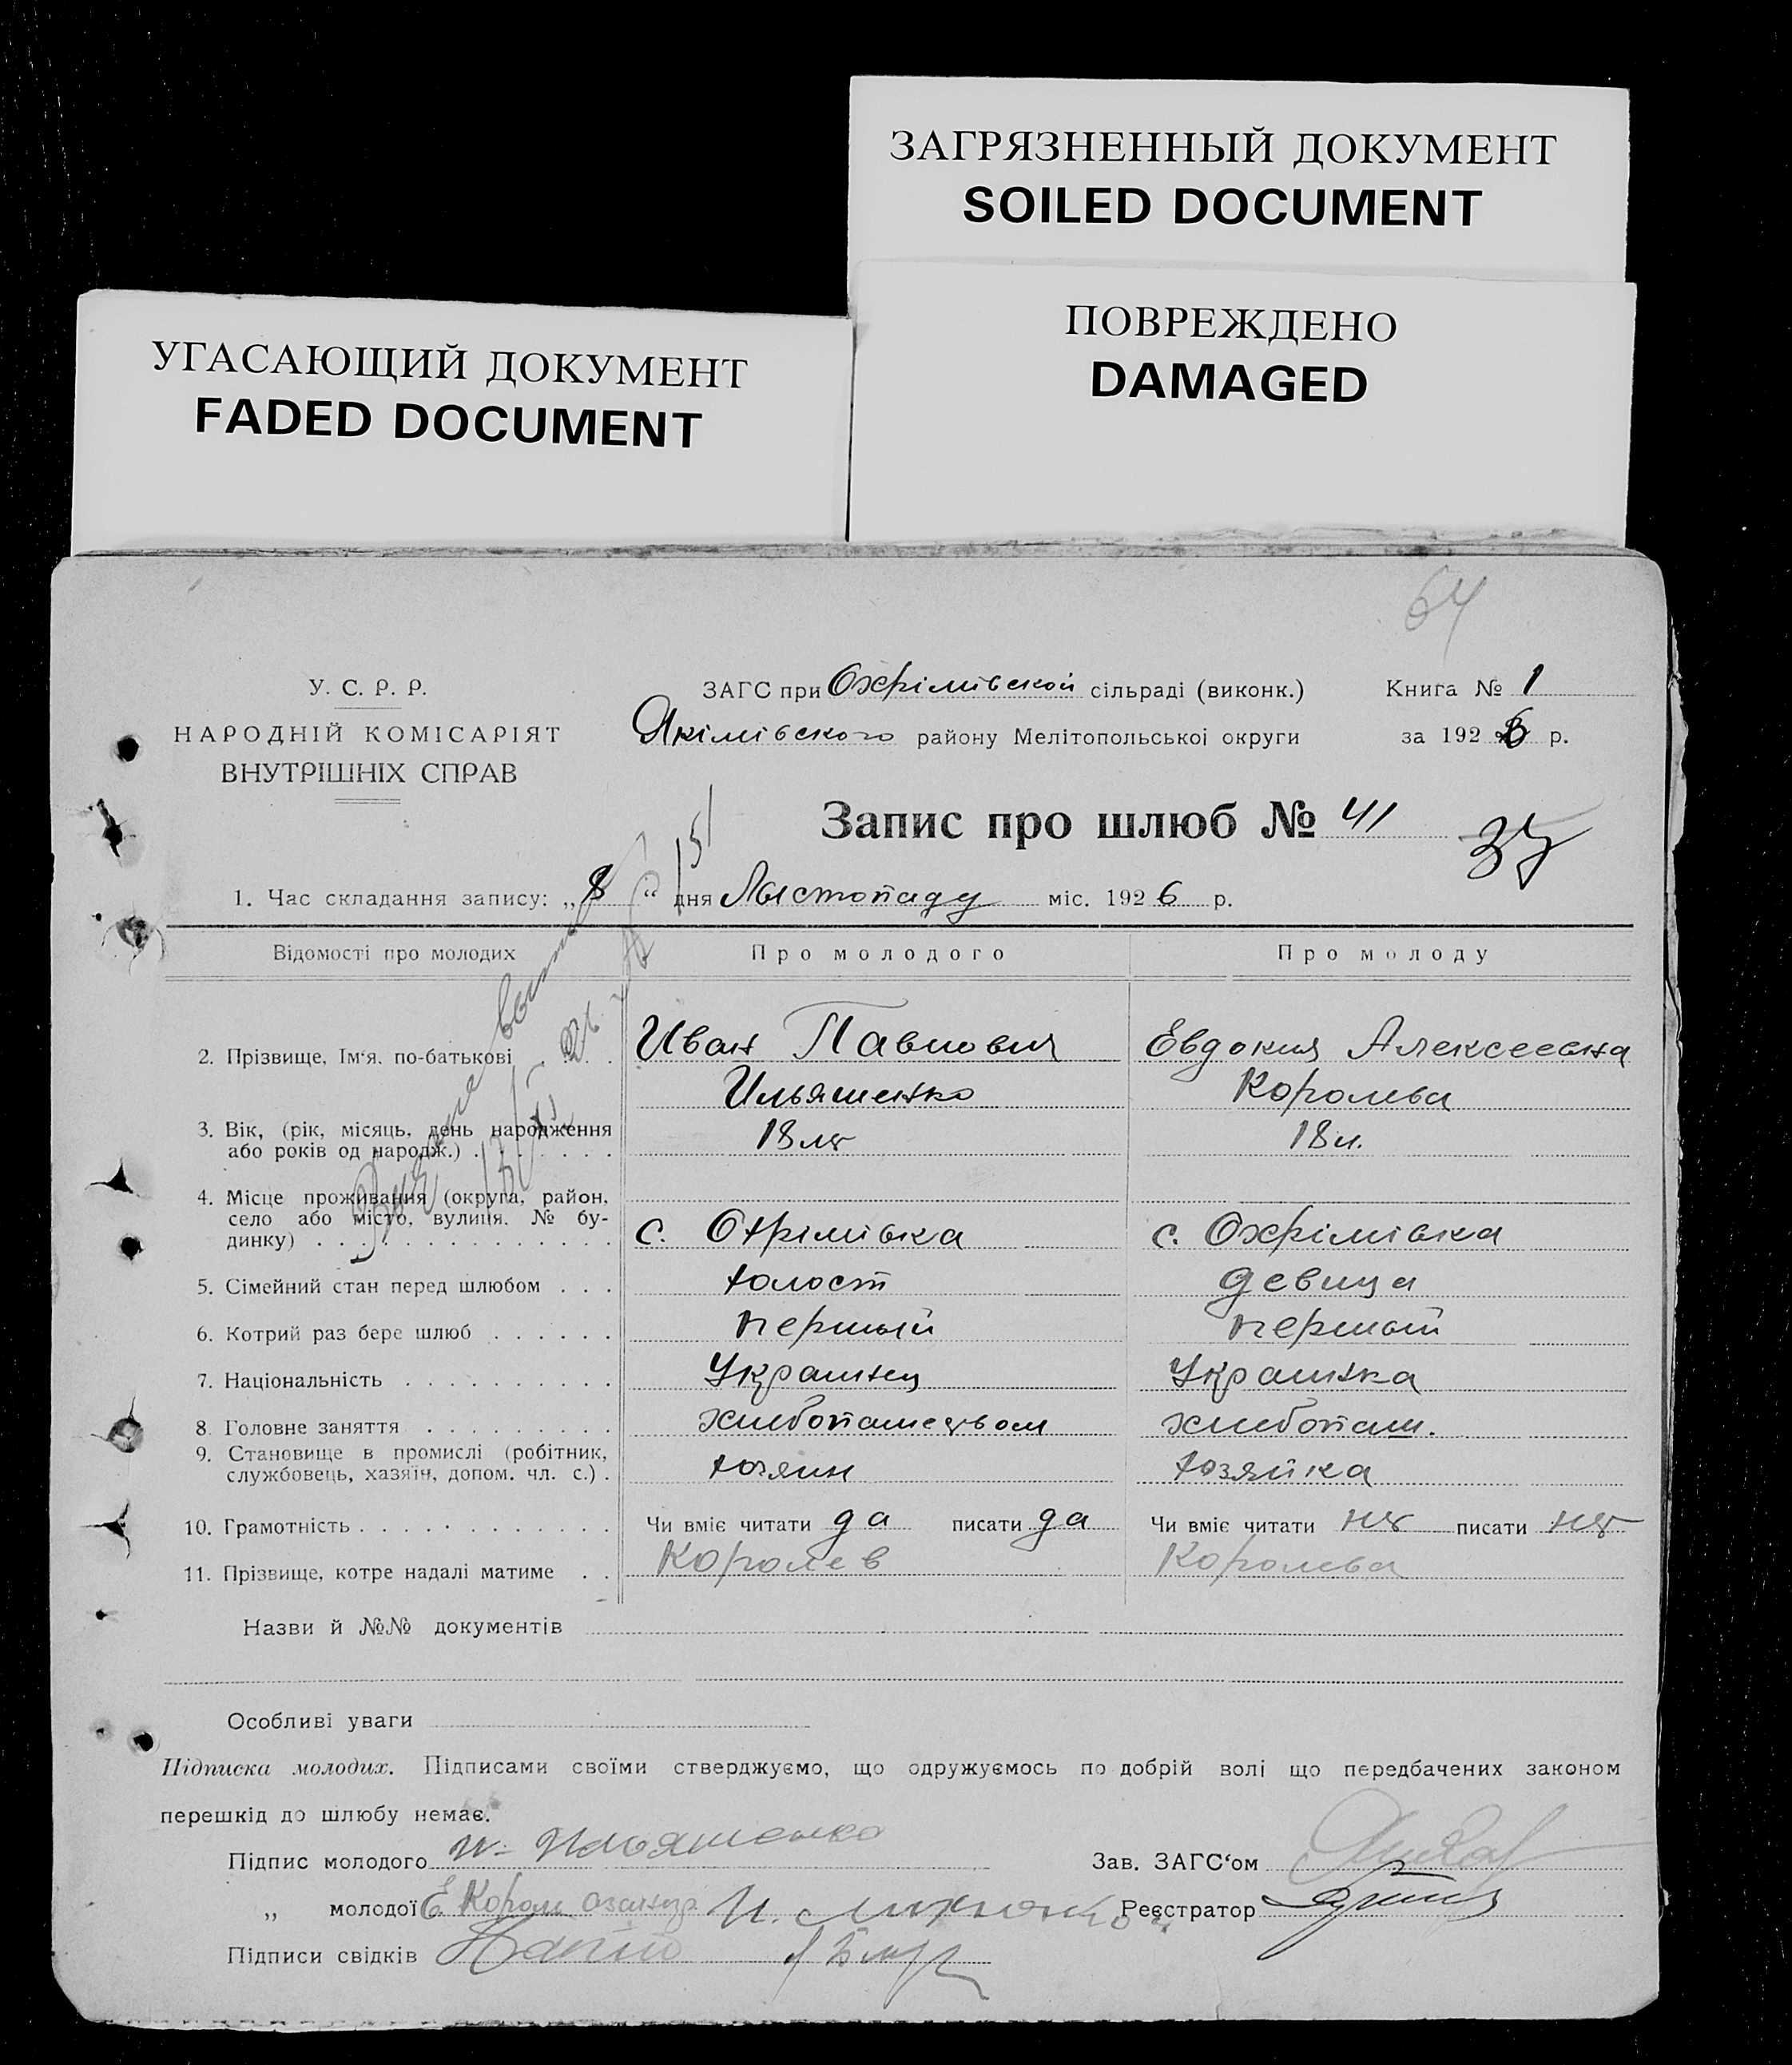 ЗАГРЯЗНЕННЫЙ ДОКУМЕНТ
SOILED DOCUMENT
ПОВРЕЖДЕНО
DAMAGED
УГАСАЮЩИЙ ДОКУМЕНТ
FADED DOCUMENT
64
У. С. Р. Р.
НАРОДНІЙ КОМІСАРІЯТ
ВНУТРІШНІХ СПРАВ
ЗАГС при Охрімівской сільраді (виконк.) Книга № 1
Якімівского району Мелітопольської округи за 1926 р.
Запис про шлюб № 41
37
1. Час складання запису: „8“ дня Листопаду міс. 1926 р.
Відомості про молодих Про молодого Про молоду
2. Прізвище, Ім'я. по-батькові Иван Павлович Евдокия Алексеевна
Ильяшенко Королева
3. Вік, (рік, місяць, день народження 18 18 л.
або років од народж.)
4. Місце проживання (округа, район,
село або місто, вулиця. № бу-
динку) с. Охрімівка с. Охрімівка
5. Сімейний стан перед шлюбом холост девица
6. Котрий раз бере шлюб первый первый
7. Національність Украинец Украинка
8. Головне заняття хлибопашеством хлибопаш.
9. Становище в промислі (робітник,
службовець, хазяїн, допом. чл. с.) хозяин хозяйка
10. Грамотність Чи вміє читати да писати да Чи вміє читати нет писати нет
11. Прізвище, котре надалі матиме Королев Королева
Назви й №№ документів
Особливі уваги
Підписка молодих. Підписами своїми стверджуємо, що одружуємось по добрій волі що передбачених законом
перешкід до шлюбу немає.
Підпис молодого И. Ильяшенко Зав. ЗАГС‘ом
„ молодої Е. Реєстратор
Підписи свідків